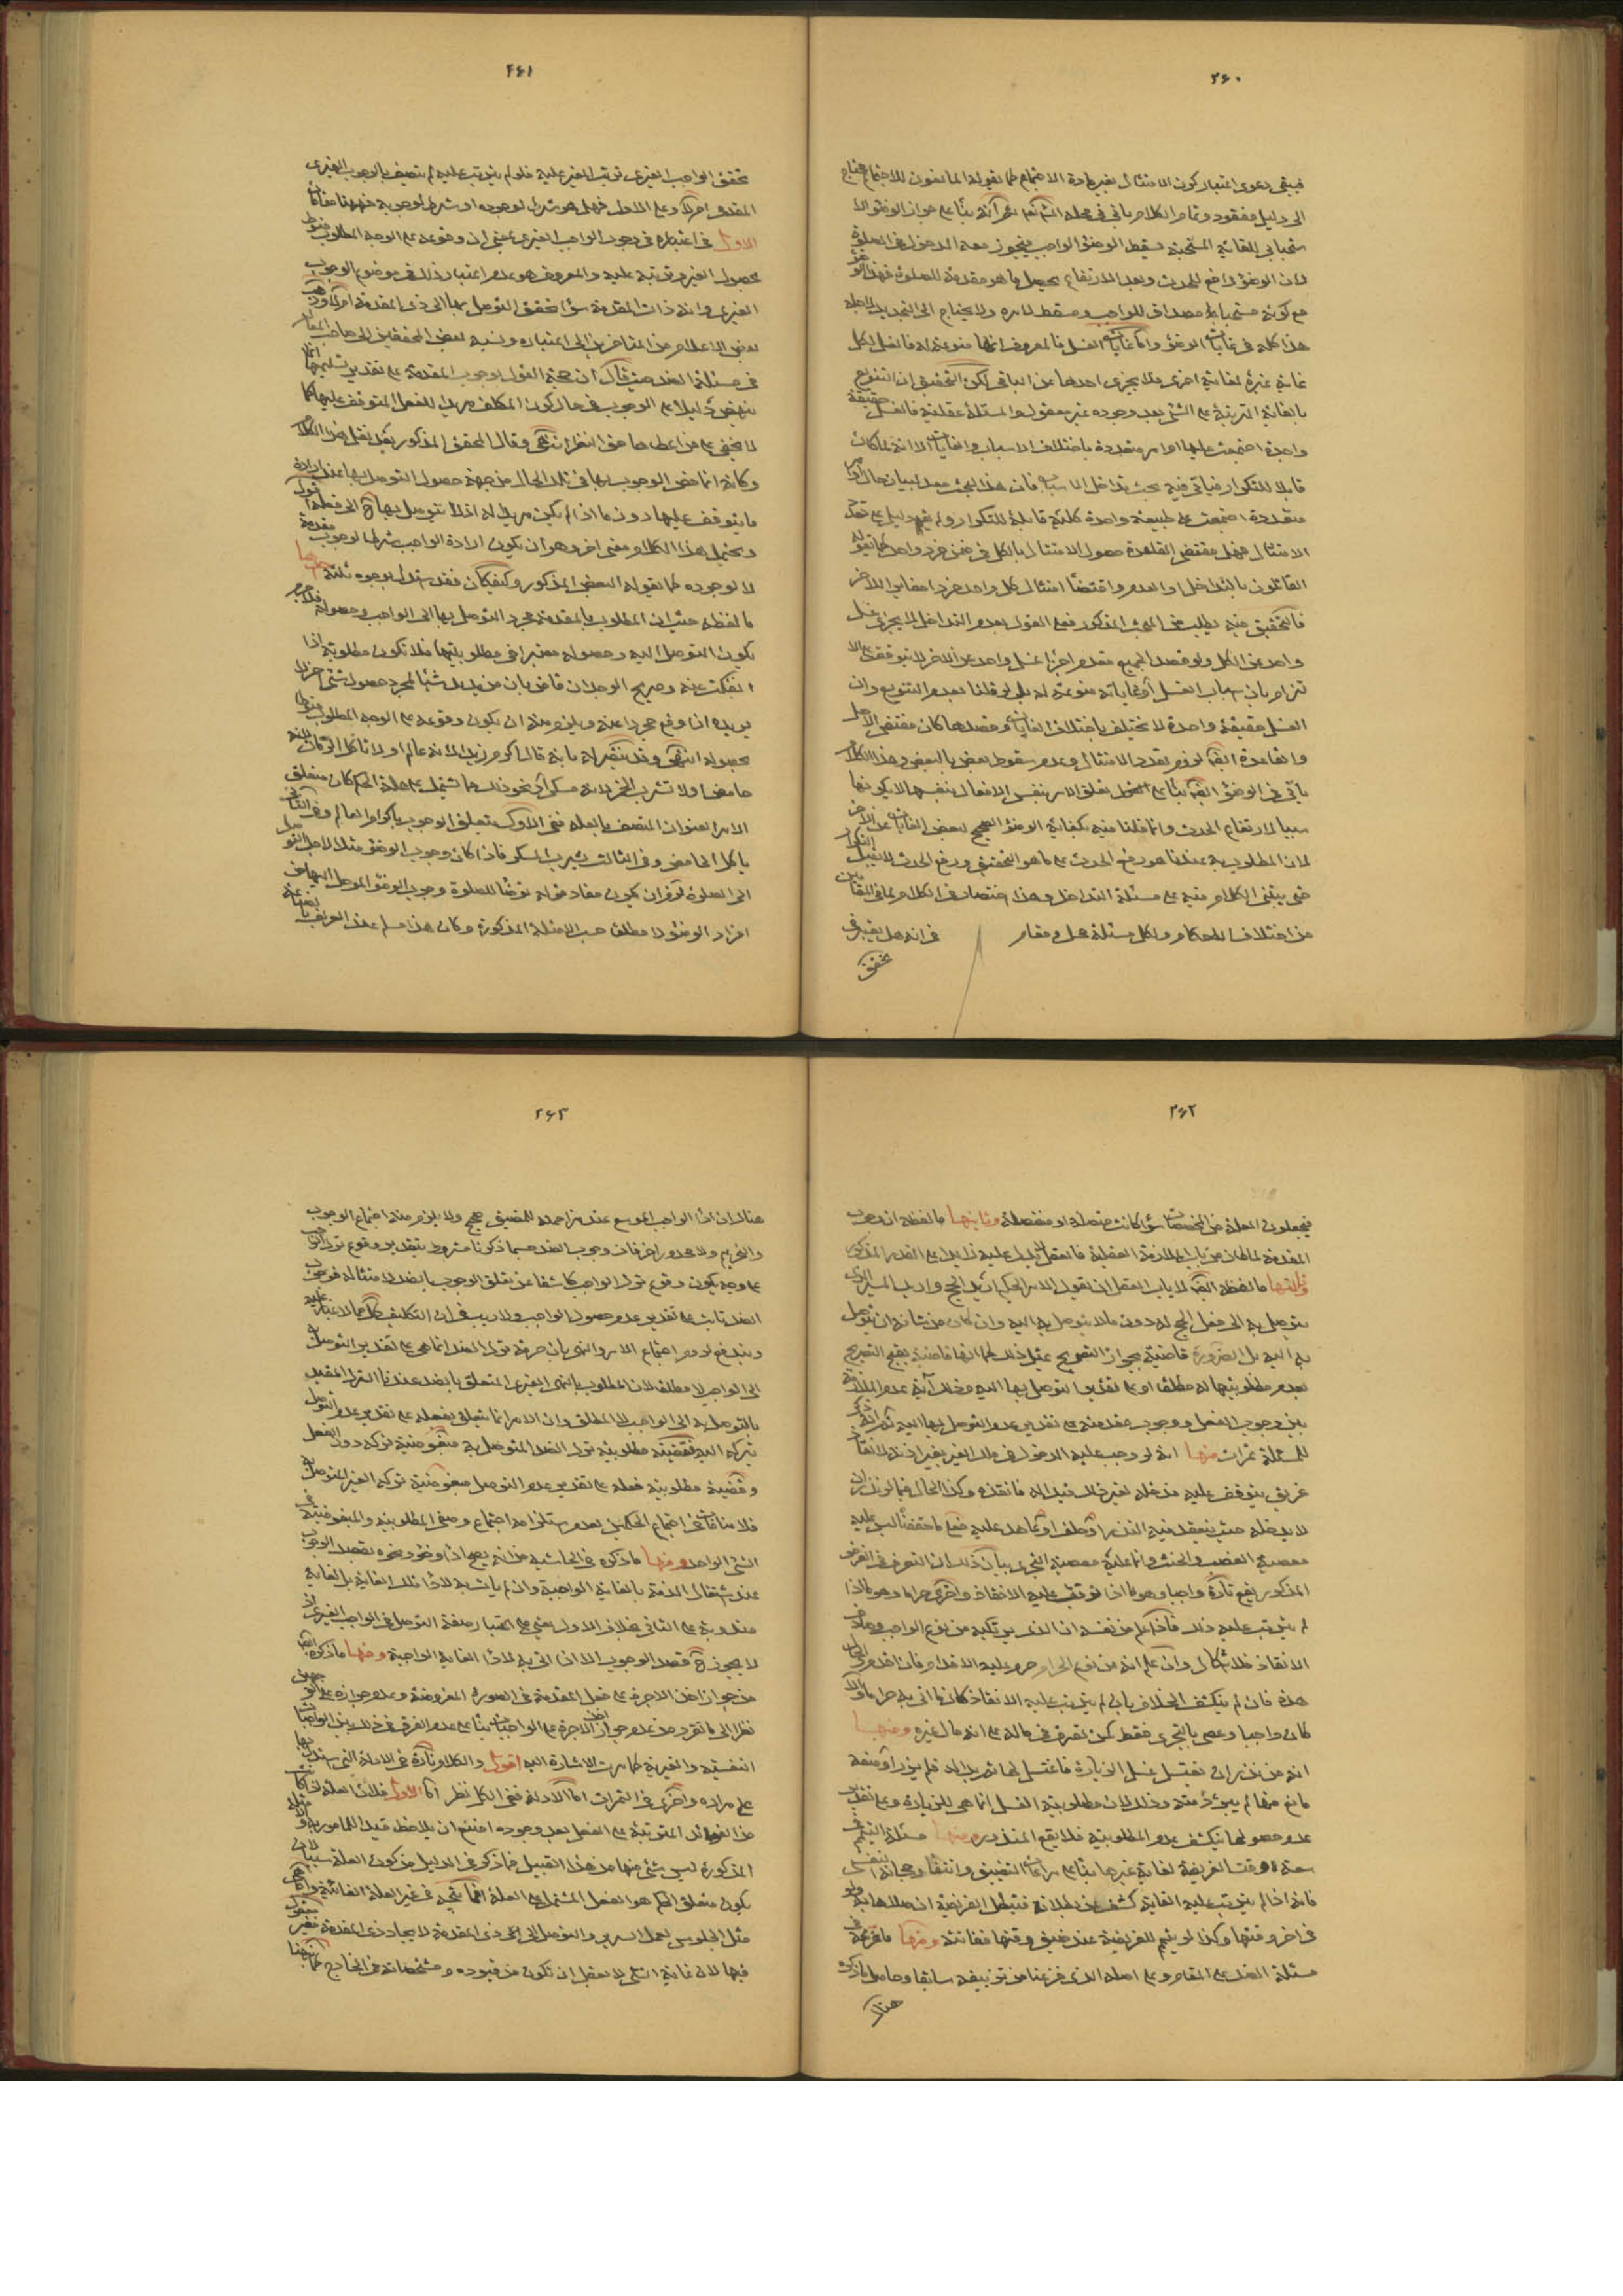 ۲۶۰
فيبقى دعوى اعتبار كون الامتثال بغير مادة الاجتماع كما يقوله المانعون للاجتماع محتاج
الى دليل مفقود وتمام الكلام ياتي في محله
لان الوضوء رافع للحدث وبعد الارتفاع يحصل ما هو مقدمة للصلوة
مع كونه مستحبا مصداق للواجب ومسقط لامره ولا يحتاج الى التجديد لاجله
هذا كله في غايات الوضوء واما غايات الغسل فالمعروف انها منوعة له فالغسل لكل
غاية غيره لغاية اخرى ولا يجزى احدها عن الباقي لكن التحقيق ان التنويع
بالغاية المترتبة على الشئ بعد وجوده غير معقول والمسئلة عقلية فالغسل حقيقة
واحدة اجتمعت عليها اوامر متعددة باختلاف الاسباب والغايات الا انه لما كان
قابلا للتكرار فياتي فيه بحث تداخل الاسباب فان هذا البحث معد لبيان حال اوامر
متعددة اجتمعت على طبيعة واحدة كلية قابلة للتكرار ولم يقم دليل على تعدد
الامتثال فهل مقتضى القاعدة حصول الامتثال بالكل في ضمن فرد واحد كما يقوله
القائلون بالتداخل او العدم واقتضاء امتثال كل واحد فردا مغايرا للاخر
فالتحقيق فيه يطلب من المبحث المذكور فعلى القول بعدم التداخل لا يجزى غسل
واحد عن الكل ولو قصد الجميع
الغسل حقيقة واحدة لا تختلف باختلاف الغايات وقصدها كان مقتضى الاصل
والقاعدة ايضا لزوم تعدد الامتثال وعدم سقوط بعض بالبعض وهذا الكلام
ياتي في الوضوء ايضا بناء على القول بتعلق الامر بنفس الافعال بنفسها لا بكونها
سببا لارتفاع الحدث وانما قلنا فيه بكفاية الوضوء الصحيح لبعض الغايات عن الاخر
لان المطلوب به عندنا هو رفع الحدث على ما هو التحقيق ورفع الحدث لا يقبل التكرار
حتى يبتنى الكلام فيه على مسئلة التداخل وهذا اختصار في الكلام
من اختلاف الاحكام ولكل مسئلة محل ومقام في انه هل يعتبر في
تحقق
۲۶۱
تحقق الواجب الغيرى ترتب الغير عليه فلو لم يترتب عليه لم يتصف بالوجوب الغيرى
المقدمى ام لا وعلى الاول فهل هو شرط لوجوده او شرط لوجوبه فههنا مقامان
الاول في اعتباره في وجوب الواجب الغيرى بمعنى ان وقوعه على الوجه المطلوب منوط
بحصول الغير وترتبه عليه والمعروف هو عدم اعتبار ذلك في موضوع الوجوب
الغيرى وانه ذات المقدمة سواء تحقق التوصل بها الى ذى المقدمة ام لا وذهب
بعض الاعلام من المتاخرين الى اعتباره ونسبه بعض المحققين الى صاحب المعالم
في مسئلة الضد حيث قال ان حجة القول بوجوب المقدمة على تقدير تسليمها انما
ينهض دليلا على الوجوب في حال كون المكلف مريدا للفعل المتوقف عليها كما
لا يخفى على من اعطاها حق النظر انتهى وقال المحقق المذكور بعد نقل هذا الكلام
وكانه انما خص الوجوب بها في تلك الحال من جهة حصول التوصل بها عند ارادة
ما يتوقف عليها دون ما اذا لم يكن مريدا له اذ لا يتوصل بها ح الى فعله اقول
ويحتمل هذا الكلام معنى اخر وهو ان يكون ارادة الواجب شرطا لوجوب مقدمة
لا لوجوده كما يقوله البعض المذكور وكيف كان فقد استدل بوجوه ثلثة احدها
ما لفظه حيث ان المطلوب بالمقدمة مجرد التوصل بها الى الواجب وحصوله فلا جرم
يكون التوصل اليه وحصوله معتبرا في مطلوبيتها فلا تكون مطلوبة اذا
انفكت عنه وصريح الوجدان قاض بان من يريد شيئا لمجرد حصول شئ اخر لا
يريده اذا وقع مجردا عنه ويلزم منه ان يكون وقوعه على الوجه المطلوب منوطا
بحصوله انتهى وقد ينتصر له بانه قال اكرم زيدا لانه عالم او لا تاكل الرمان لانه
حامض او لا تشرب الخمر لانه مسكر او نحو ذلك مما يشتمل على علة الحكم كان متعلق
الامر العنوان المتصف بالعلة ففى الاول يتعلق الوجوب باكرام العالم وفى الثانى
باكل الحامض وفى الثالث بشرب المسكر فاذا كان وجوب الوضوء مثلا لاجل التوصل
الى الصلوة لزم ان يكون مفاد قوله توضأ للصلوة وجوب الوضوء الموصل اليها من
افراد الوضوء لا مطلقا حسب الامثلة المذكورة وكان هذا مسلم عند العرف
۲۶۲
فيجعلون العلة من المخصصات سواء كانت متصلة او منفصلة وثانيها ما لفظه ان وجوب
المقدمة لما كان من باب الملازمة العقلية فالعقل لا يدل عليه زايدا على القدر المذكور
وثالثها ما لفظه ايضا لا يابى العقل ان يقول الامر الحكيم اريد الحج واريد المسير الذى
يتوصل به الى فعل الحج له دون ما لا يتوصل به اليه وان كان من شانه ان يتوصل
به اليه بل الضرورة قاضية بجواز التصريح بمثل ذلك كما انها قاضية بقبح التصريح
بعدم مطلوبيتها له مطلقا او على تقدير التوصل بها اليه وذلك آية عدم الملازمة
بين وجوب الفعل ووجوب مقدمته على تقدير عدم التوصل بها اليه ثم انه ذكر
للمسئلة ثمرات منها انه لو وجب عليه الدخول في ملك الغير بغير اذنه لانقاذ
غريق يتوقف عليه فدخله لغير ذلك فبدا له فانقذه وكذا الحال فيما لو نذر ان
لا يدخله حيث ينعقد فيه النذر او حلف او عاهد عليه
معصية الغصب والحنث وانما عليه معصية التجرى بيان ذلك ان التصرف في الغرض
المذكور يقع تارة واجبا وهو ما اذا توقف عليه الانقاذ واخرى حراما وهو ما اذا
لم يترتب عليه ذلك فاذا علم من نفسه ان الذى يرتكبه من نوع الواجب وهاد
الانقاذ فلا اشكال وان علم انه من نوع الحرام حرم عليه الاقدام فان اقدم والحال
هذه فان لم ينكشف الخلاف بان لم يترتب عليه الانقاذ كان ما اتى به حراما والا
كان واجبا وعصى بالتجرى فقط كمن تصرف في ماله على انه مال غيره ومنها
انه من نذر ان يغتسل غسل الزيارة فاغتسل لها ثم بدا له فلم يزر او منعه
مانع منها لم يبرئ ذمته وذلك لان مطلوبية الغسل انما هى للزيارة وعلى تقدير
عدم حصولها ينكشف عدم المطلوبية فلا يقع المنذور ومنها مسئلة التيمم في
سعة وقت الفريضة لغاية غيرها بناء على مراعات التضييق
فانه اذا لم يترتب عليه الغاية كشف عن بطلانه فتبطل الفريضة ان صلاها به ولو
في اخر وقتها وكذا لو تيمم للفريضة عند ضيق وقتها ففاتته ومنها ما فرعه في
مسئلة الضد على المقام وعلى اصله الذى فرغنا من تزييفه سابقا وحاصل ما ذكره
هناك
۲۶۳
هناك ان اداء الواجب الموسع عند مزاحمته للمضيق صحيح ولا يلزم منه اجتماع الوجوب
والتحريم ولا محذور اخر فان وجوب الضد حسبما ذكرنا مشروط بتقدير وقوع ترك الواجب
على وجه يكون وقوع ترك الواجب كاشفا عن تعلق الوجوب بالضد
الضد ثابت على تقدير عدم حصول الواجب ولا ريب في ان التكليف
ويندفع لزوم اجتماع الامر والنهى بان حرمة ترك الضد انما هى على تقدير التوصل به
الى الواجب لا مطلقا لان المطلوب بالنهى الغيرى المتعلق بالضد عندنا الترك المقيد
بالتوصل به الى الواجب لا المطلق وان الامر انما يتعلق بفعله على تقدير عدم التوصل
بتركه اليه فقضية مطلوبية ترك الضد المتوصل به مبغوضية تركه دون الفعل
وقضية مطلوبية فعله على تقدير عدم التوصل مبغوضية تركه الغير المتوصل به
فلا منافات في اجتماع الحكمين لعدم استلزامه اجتماع وصفى المطلوبية والمبغوضية في
الشئ الواحد ومنها ما ذكره في الحاشية من انه يصح اذا وضوء ونحوه بقصد الوجوب
عند اشتغال الذمة بالغاية الواجبة وان لم يات به لاداء تلك الغاية بل لغاية
مندوبة على الثانى بخلاف الاول يعنى على اعتبار صفة التوصل في الواجب الغيرى اذ
لا يجوز ح قصد الوجوب الا اذا اتى به لاداء الغاية الواجبة ومنها ما ذكره ايضا
من جواز اخذ الاجرة على فعل المقدمة في الصورة المفروضة وعدم جوازه على القولين
نظرا الى ما تقرر من عدم جواز اخذ الاجرة على الواجبات بناء على عدم الفرق في ذلك بين الواجبات
النفسية والغيرية كما مرت الاشارة اليه اقول والكلام تارة في الادلة التى استدل بها
على مراده واخرى في الثمرات اما الادلة ففى الكل نظر اما الاول فلان العلة اذا كانت
من الفوائد المترتبة على الفعل بعد وجوده امتنع ان يلاحظ قيدا للمامور به والامثلة
المذكورة ليس شئ منها من هذا القبيل فما ذكر في الدليل من كون العلة سببا لان
يكون متعلق الحكم هو الفعل المشتمل على العلة انما يتجه في غير العلة الغائية واما هى
مثل الجلوس لعمل السرير والتوصل الى ذى المقدمة لايجاد ذى المقدمة فغير معقول
فيها لان غاية الشئ لا يعقل ان تكون من قيوده ومشخصاته في الخارج